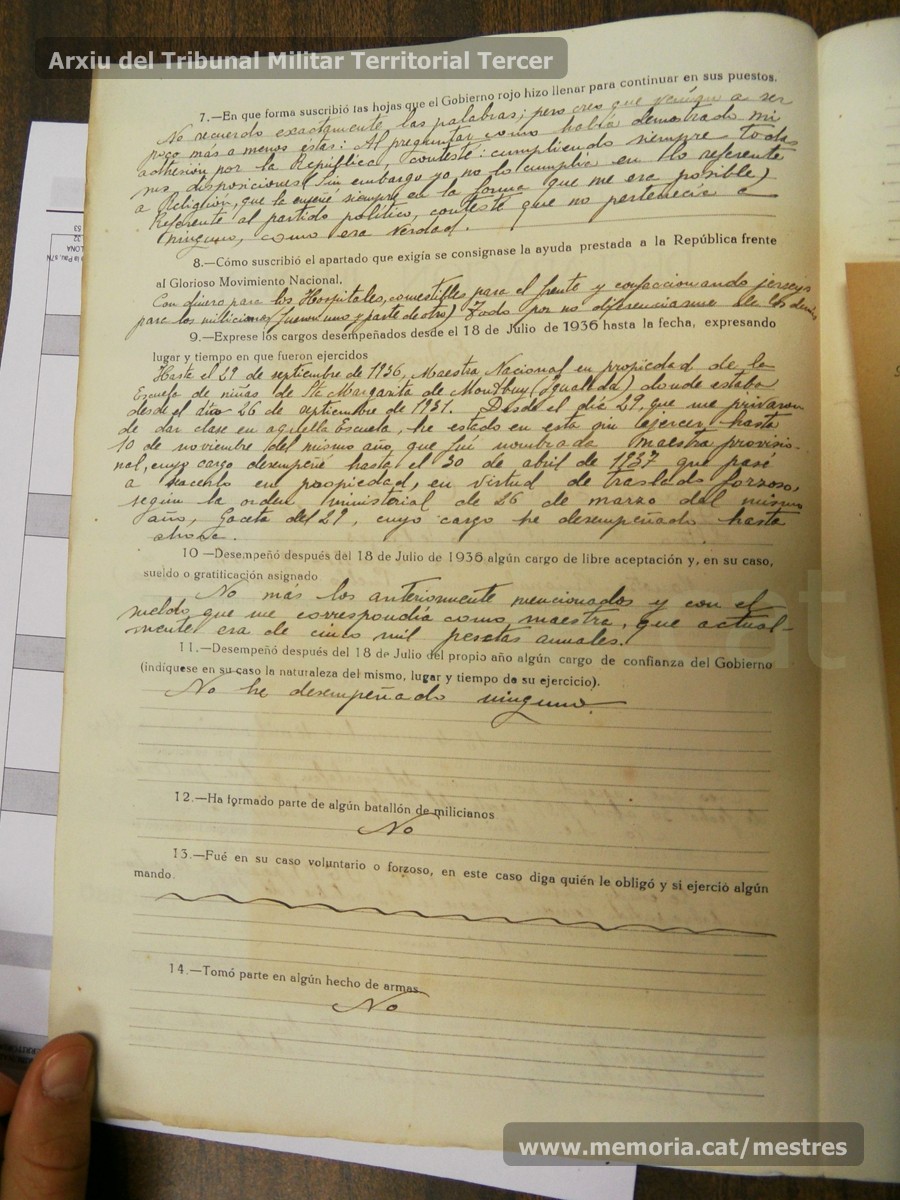 Arxiu del Tribunal Militar Territorial Tercer
7.—En que forma suscribió las hojas que el Gobierno rojo hizo llenar para continuar en sus puestos.
No recuerdo exactamente las palabras; pero creo que venían a ser
poco más a menos estas: Al preguntar como había demostrado mi
adhesión por la República, contesté: cumpliendo siempre todas
sus disposiciones (Sin embargo yo no lo cumplía en lo referente
a Religión, que la enseñé siempre en la forma que me era posible)
Referente al partido político, contesté que no pertenecía a
ninguno, como era verdad.
8.—Cómo suscribió el apartado que exigía se consignase la ayuda prestada a la República frente
al Glorioso Movimiento Nacional.
Con dinero para los Hospitales, comestibles para el frente y confaccionando jerseys
para los milicianos (fueron uno y parte de otro) Todo por no diferenciarme de los demás
9.—Exprese los cargos desempeñados desde el 18 de Julio de 1936 hasta la fecha, expresando
lugar y tiempo en que fueron ejercidos
Hasta el 29 de septiembre de 1936, Maestra Nacional en propiedad de la
Escuela de niñas de Sta Margarita de Montbuy (Igualada) donde estaba
desde el día 26 de septiembre de 1931. Desde el día 29, que me privaron
de dar clase en aquella Escuela, he estado en esta sin ejercer, hasta
10 de noviembre del mismo año, que fuí nombrada maestra provisio-
nal, cuyo cargo desempeñé hasta el 30 de abril de 1937 que pasé
a hacerlo en propiedad, en virtud de traslado forzoso,
según la orden ministerial de 26 de marzo del mismo
año, Gaceta del 29, cuyo cargo he desempeñado hasta
ahora.
10 —Desempeñó después del 18 de Julio de 1936 algún cargo de libre aceptación y, en su caso,
sueldo o gratificación asignado
No más los anteriormente mencionados y con el
sueldo que me correspondía como maestra, que actual-
mente era de cinco mil pesetas anuales.
11.—Desempeñó después del 18 de Julio del propio año algún cargo de confianza del Gobierno
(indíquese en su caso la naturaleza del mismo, lugar y tiempo de su ejercicio).
No he desempeñado ninguno.
12.—Ha formado parte de algún batallón de milicianos
No
13.—Fué en su caso voluntario o forzoso, en este caso diga quién le obligó y si ejerció algún
mando.
14.—Tomó parte en algún hecho de armas
No
www.memoria.cat/mestres